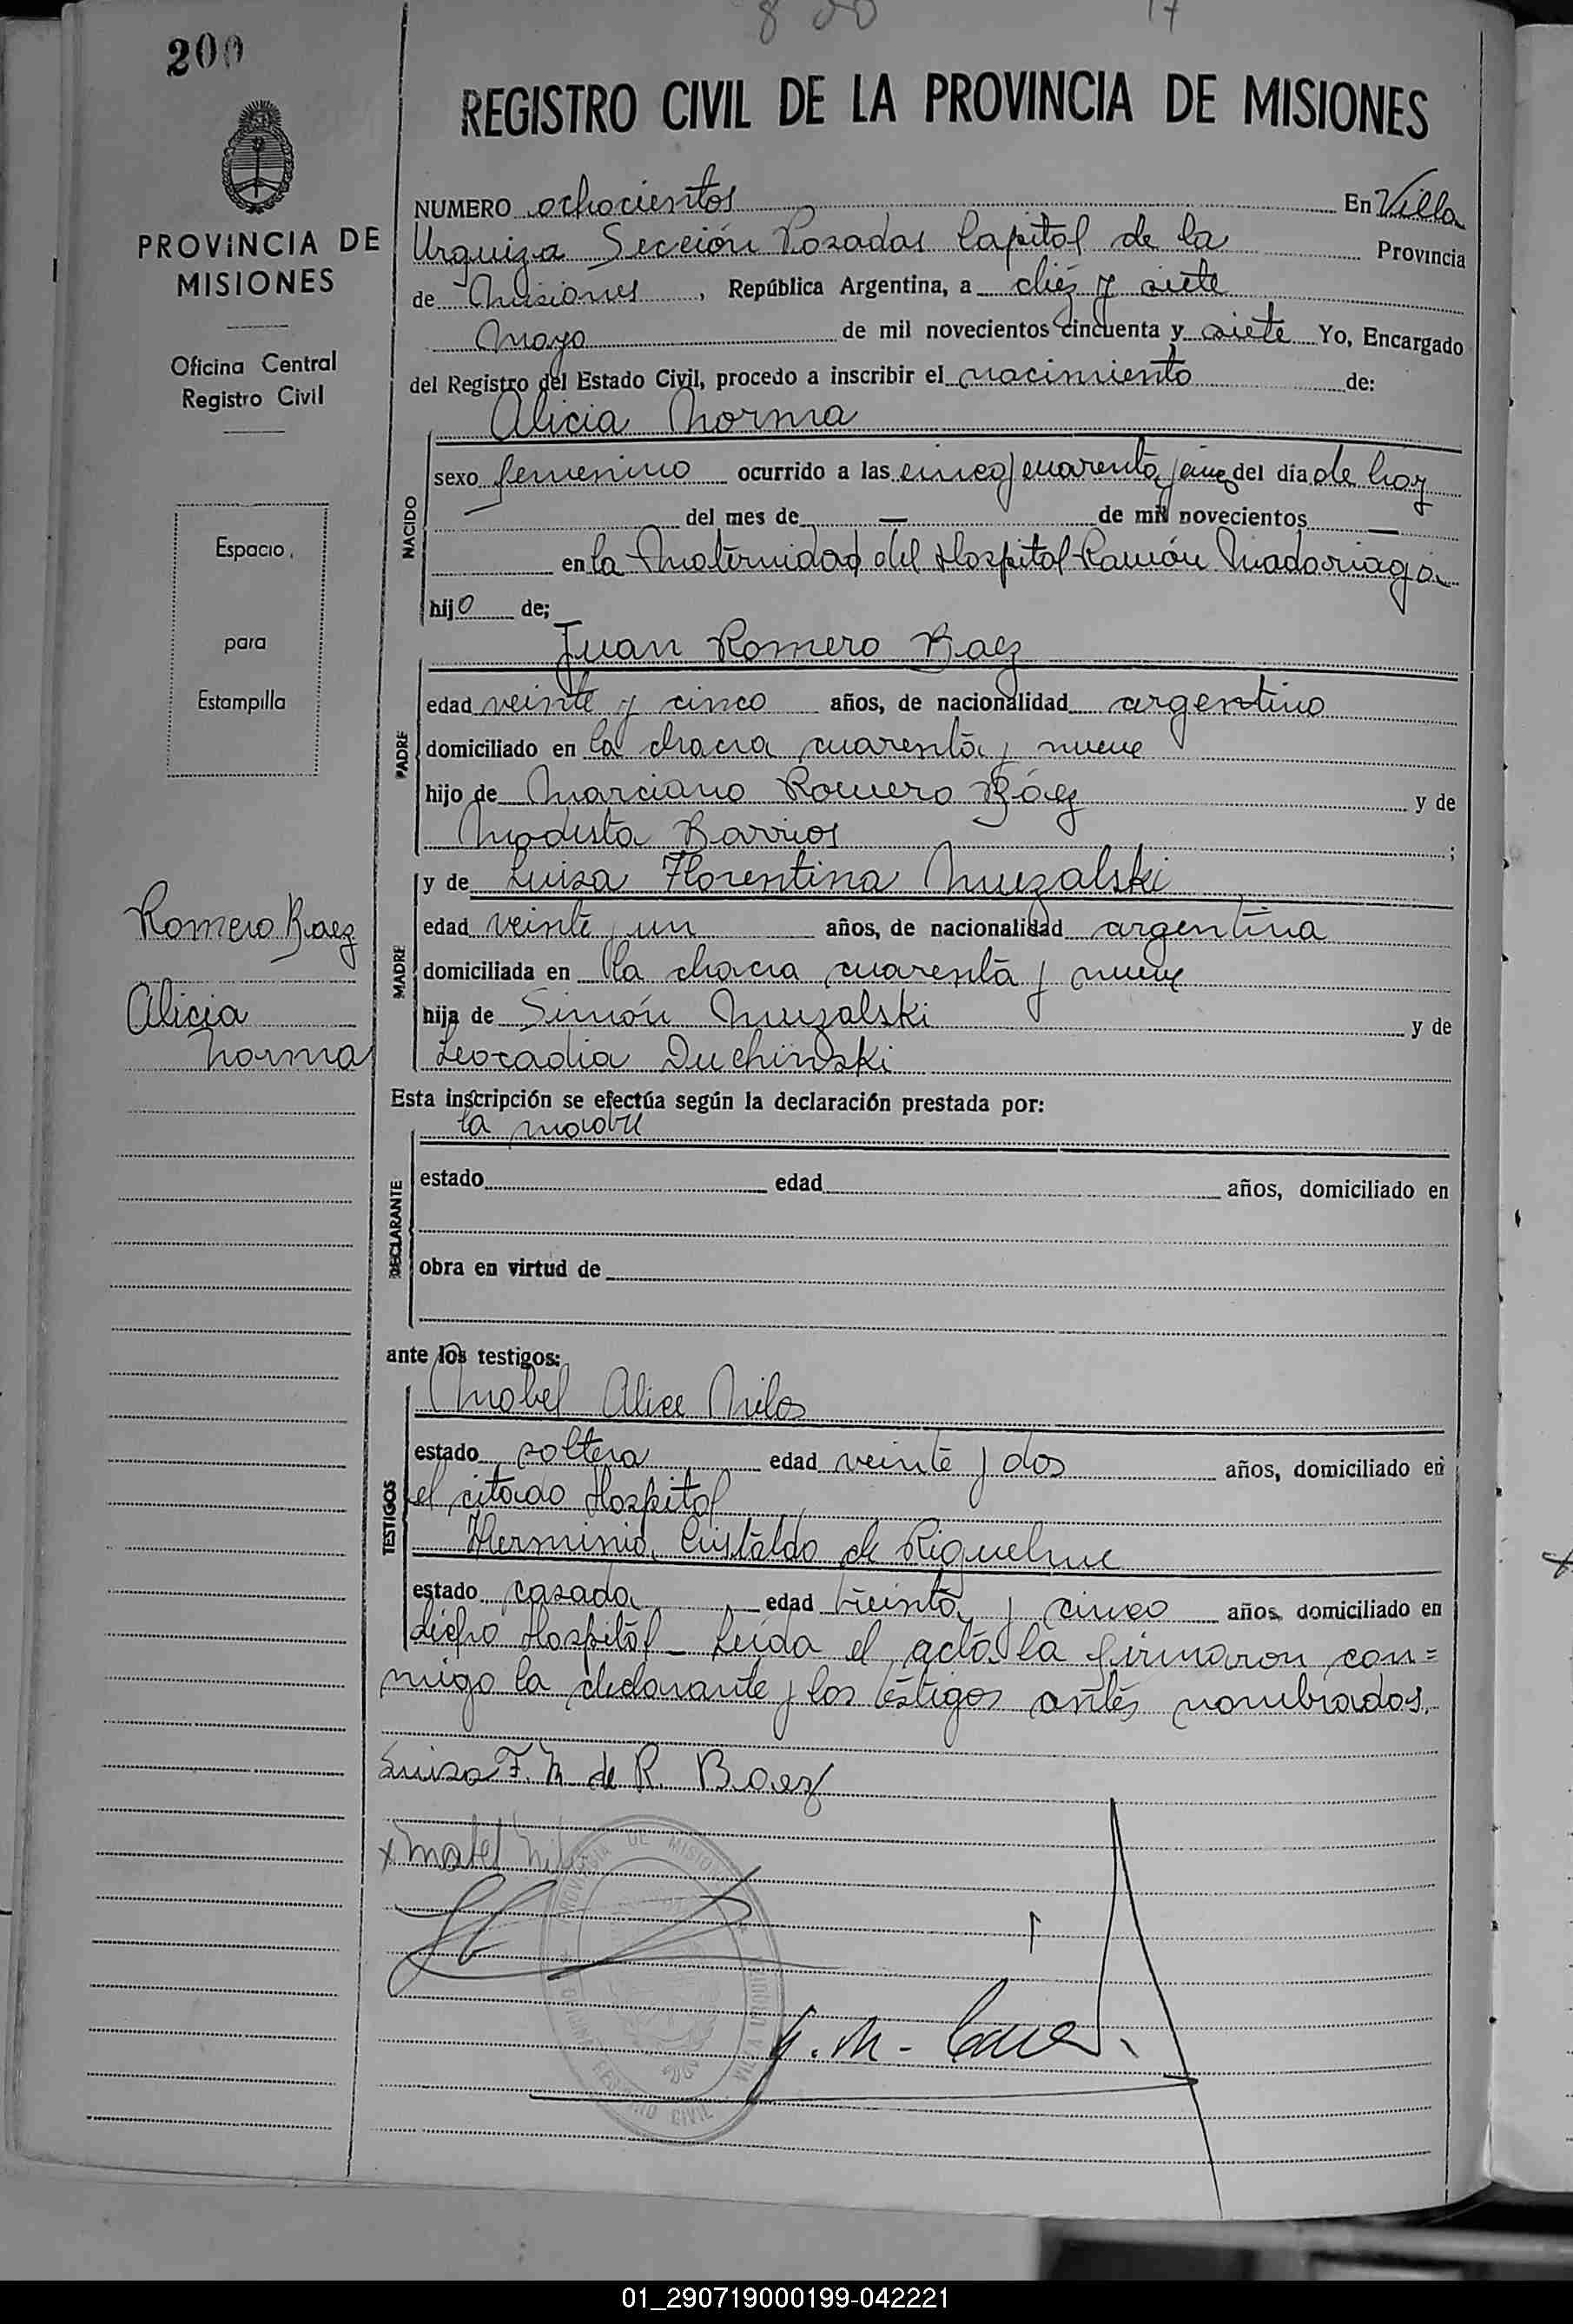 8 00 17
200
REGISTRO CIVIL DE LA PROVINCIA DE MISIONES
PROVINCIA DE
MISIONES
Oficina Central
Registro Civil
Espacio
para
Estampilla
Romero Baez
Alicia
Norma
NUMERO ochocientos En Villa
Urquiza Sección Posadas Capital de la Provincia
de Misiones, República Argentina, a diéz y siete
Mayo de mil novecientos cincuenta y siete Yo, Encargado
del Registro del Estado Civil, procedo a inscribir el nacimiento de:
Alicia Norma
NACIDO
sexo femenino ocurrido a las cinco y cuarenta y cinco del día de hoy
del mes de — de mil novecientos —
en la Maternidad del Hospital Ramón Madariaga
hijo de;
Juan Romero Baez
PADRE
edad veinte y cinco años, de nacionalidad argentino
domiciliado en la chacra cuarenta y nueve
hijo de Marciano Romero Báez y de
Modesta Barrios ;
y de Luisa Florentina Muzalski
MADRE
edad veinte y un años, de nacionalidad argentina
domiciliada en la chacra cuarenta y nueve
hija de Simón Muzalski y de
Leocadia Duchinski
Esta inscripción se efectúa según la declaración prestada por:
la madre
DECLARANTE
estado edad años, domiciliado en
obra en virtud de
ante los testigos:
Mabel Alice Milos
TESTIGOS
estado soltera edad veinte y dos años, domiciliado en
el citado Hospital
Herminia Cristaldo de Riquelme
estado casada edad treinta y cinco años, domiciliado en
dicho Hospital - Leída el acta la firmaron con=
migo la declarante y los testigos antes nombrados.
Luisa F. M de R. Baez
x Mabel
PROVINCIA DE MISIONES
REGISTRO CIVIL
01_290719000199-042221